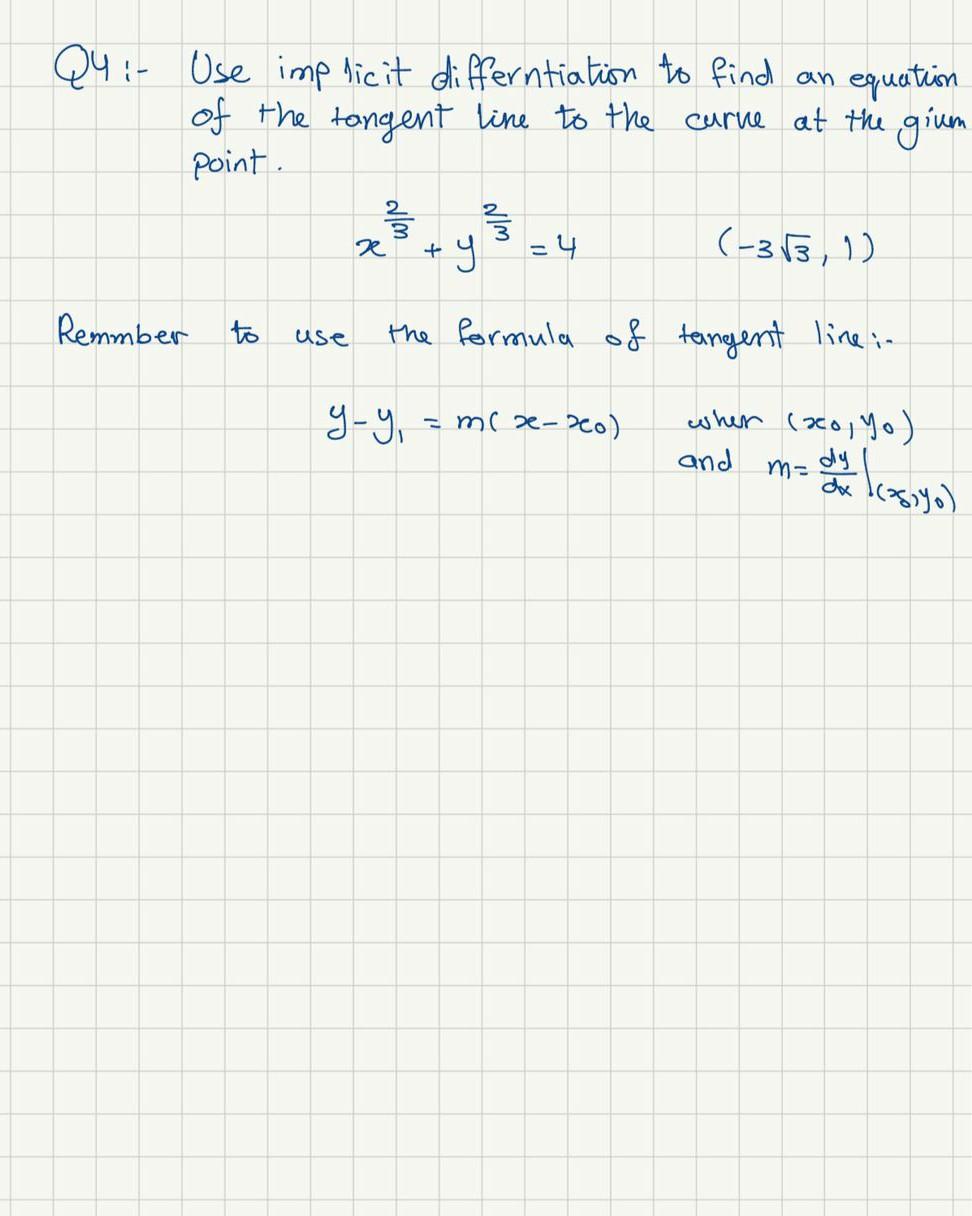 Q4:- Use implicit differntiation to find an equation
of the tangent line to the curve at the givm
point.
x^{2/3} + y^{2/3} = 4 (-3√3, 1)
Remmber to use the formula of tangent line:-
y-y₁ = m(x-x₀) when (x₀,y₀)
and m = dy/dx |(x₀,y₀)